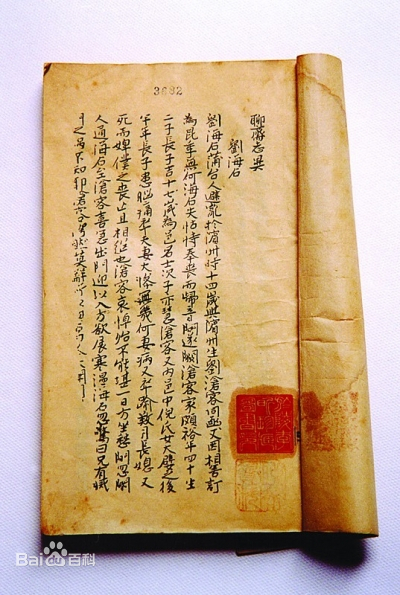 3682
聊齋志異
劉海石
劉海石蒲台人避亂於濱州時十四歲與濱州生劉滄客同函丈因相善訂
為昆季無何海石失怙恃奉喪而歸音問遂闕滄客家頗裕年四十生
二子長子吉十七歲為邑名士次子亦慧滄客又內邑中倪氏女大嬖之後
半年長子患腦痛卒夫妻大慘無幾何妻病又卒踰數月長媳又
死而婢僕之喪亡且相繼也滄客哀悼殆不能堪一日方坐愁間忽閽
人通海石至滄客喜急出門迎以入方欲展寒溫海石忽驚曰兄有滅
Bai百科